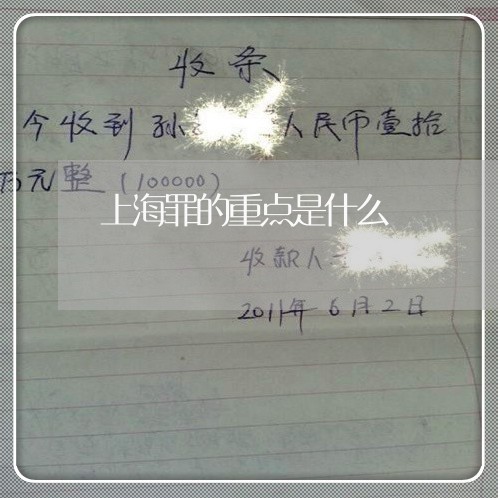 收条
今收到孙 人民币壹拾
万元整(100000)
上海罪的重点是什么
收款人
2011年6月2日